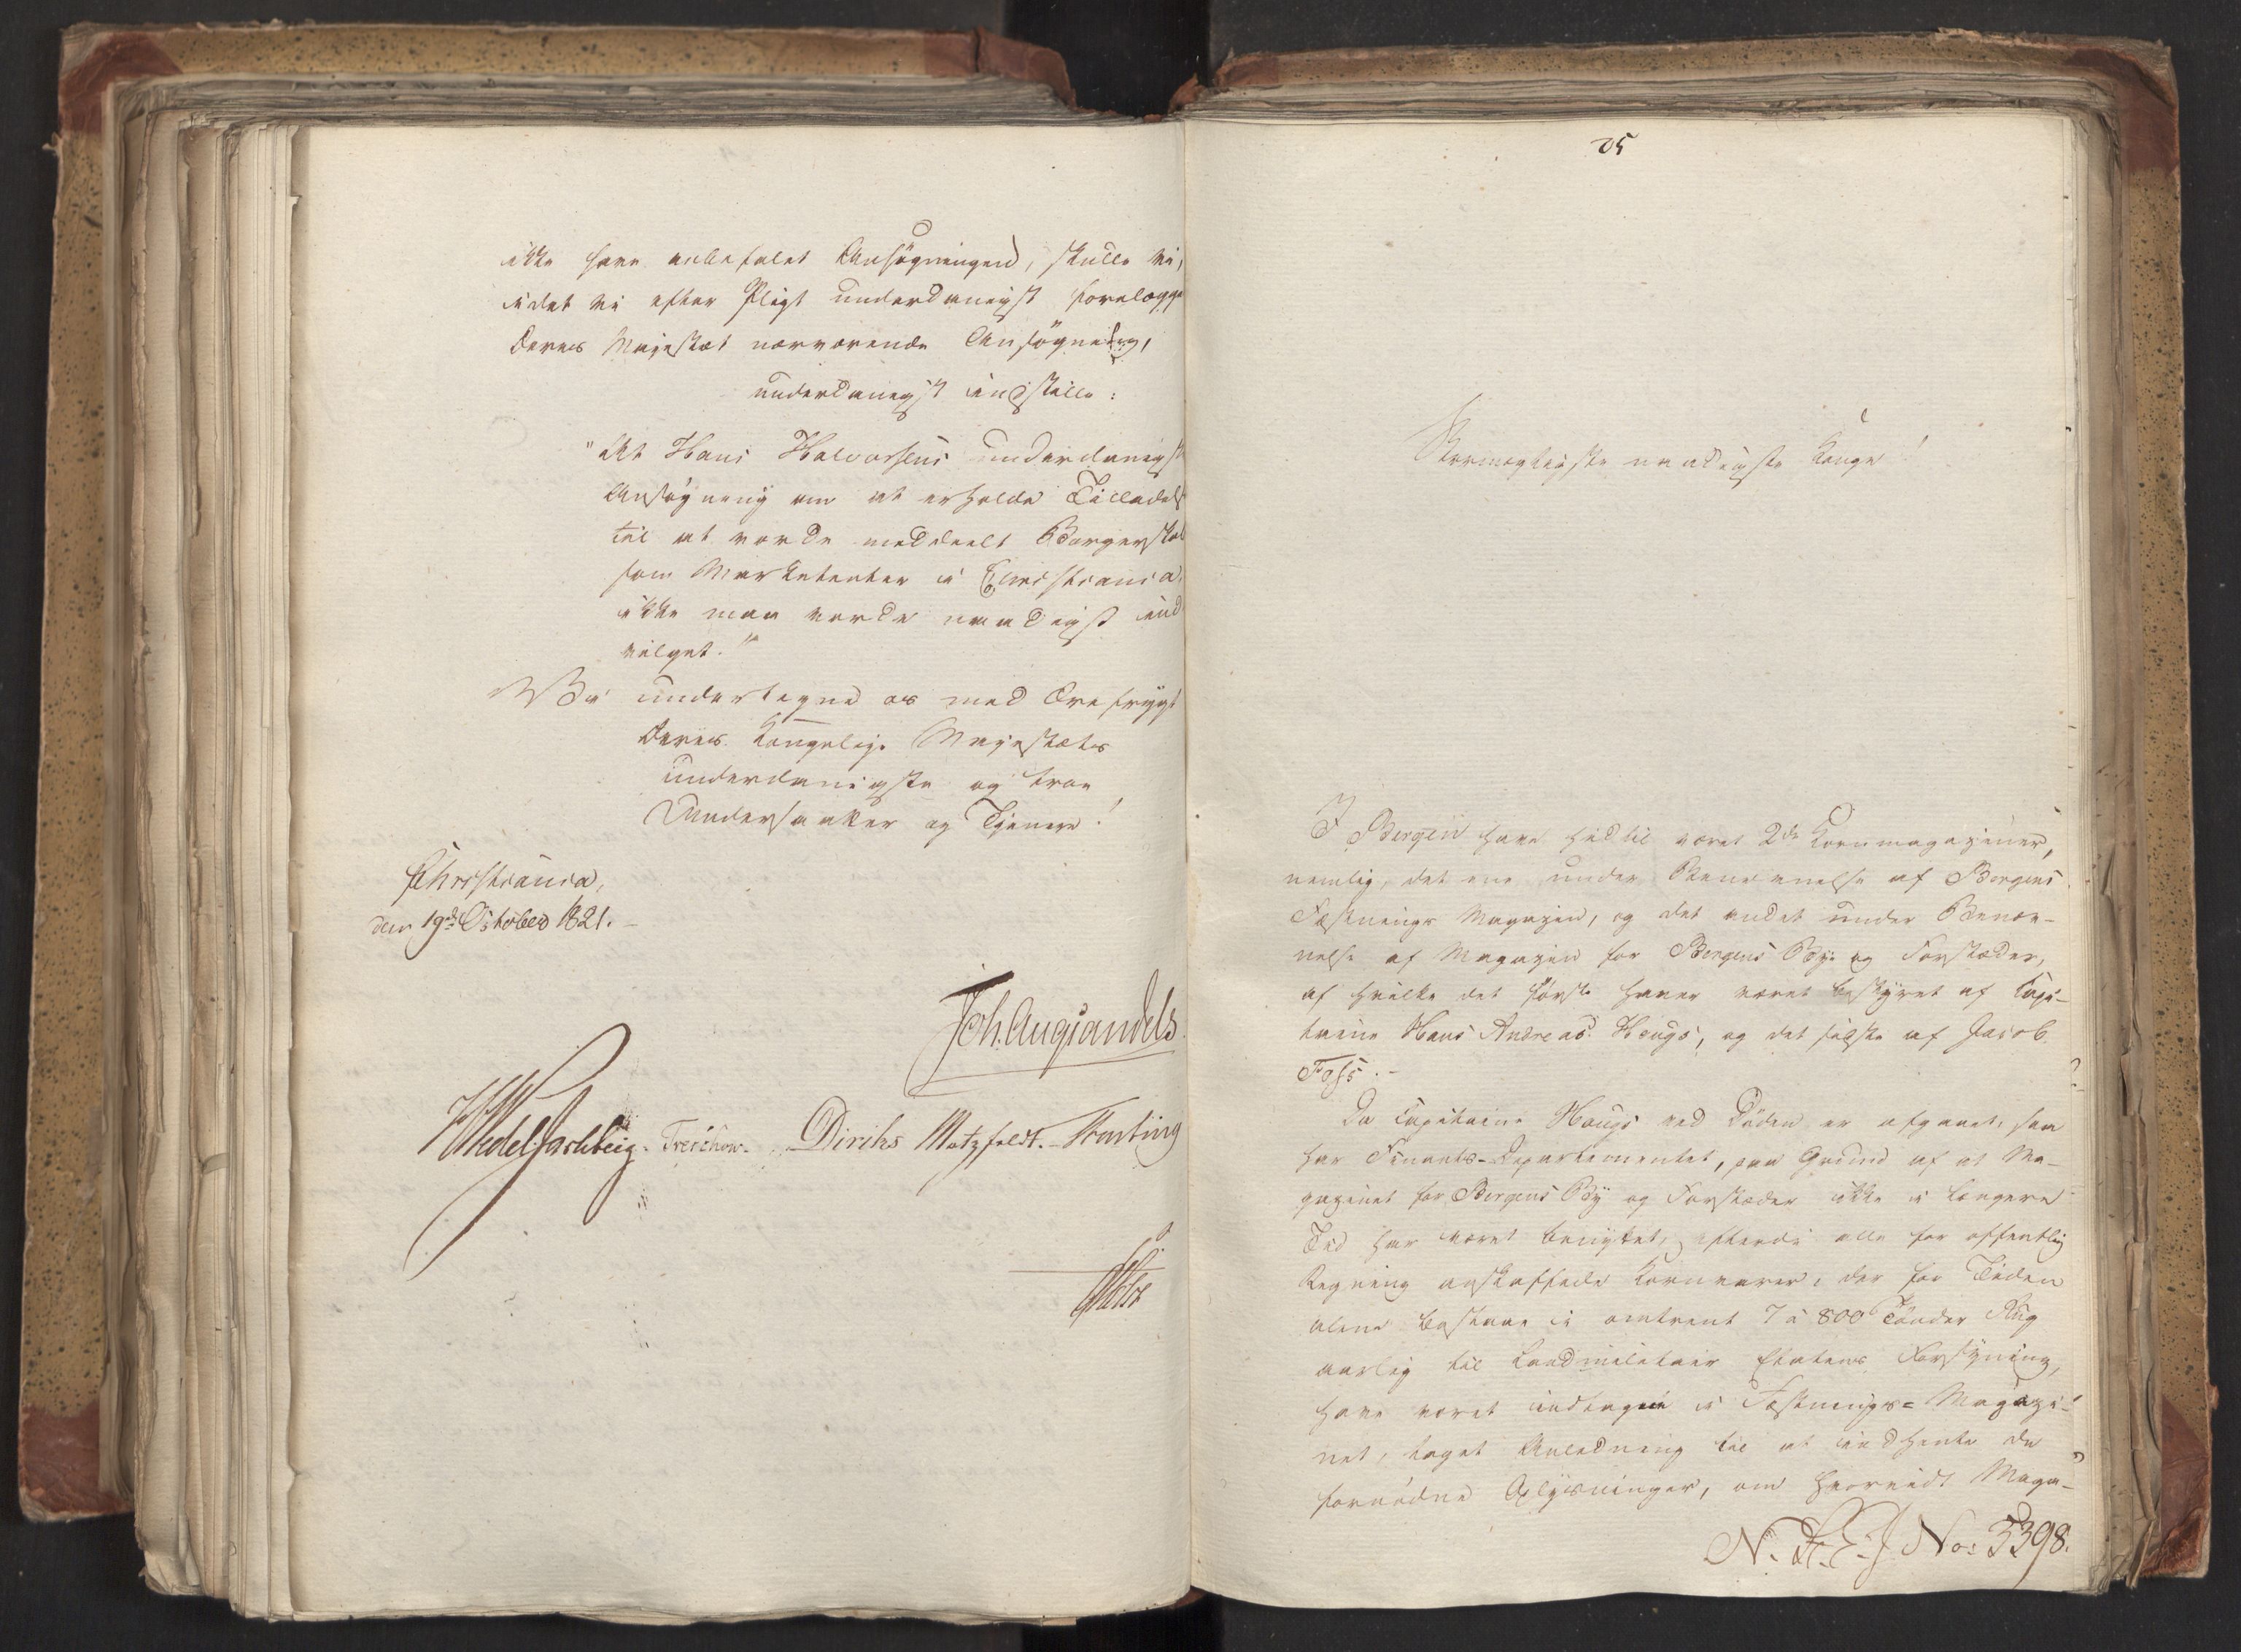 ikke have anbefalet Ansøgningen, skulle vi,
idet vi efter Pligt underdanigst forelægge
Deres Majestæt nærværende Ansøgning,
underdanigst indstille:
"At Hans Halvorsens underdanigst
Ansøgning om at erholde Tilladels
til at vorde meddeelt Borgerskab
som Marketenter i Christiania,
ikke maa vorde naadigst ind
vilget."
Vi undertegne os med Ærefrygt
Deres Kongelige Majestæts
underdanigste og troe
Undersaatter og Tjenere!
Christiania,
den 19de October 1821.
Joh. Aug. Sandels
HWedel Jarlsberg. Treschow. Diriks Motzfeldt. Fasting
Holst
25
Stormægtigste naadigste Konge!
I Bergen have hidtil været 2de Kornmagaziner,
nemlig, det ene under Benævnelse af Bergens
Fæstnings Magazin, og det andet under Benæv-
nelse af Magazin for Bergens Bye og Forstæder,
af hvilke det første haver været bestyret af Capi-
taine Hans Andreas Haugs, og det sidste af Jacob
Foss.-
Da Capitaine Haugs ved Døden er afgaaet, saa
har Finants-Departementet, paa Grund af at Ma-
gazinet for Bergens By og Forstæder ikke i længere
Tid har været benyttet, efterdi alle for offentlig
Regning anskaffede Kornvarer, der for Tiden
alene bestaae i omtrent 7 à 800 Tønder Rug
aarlig til Landmilitair Etatens Forsyning,
have været indtagne i Fæstnings-Magazi-
net, taget Anledning til at indhente de
fornødne Oplysninger, om hvorvidt Maga-
N. R. E. J. No: 3398.